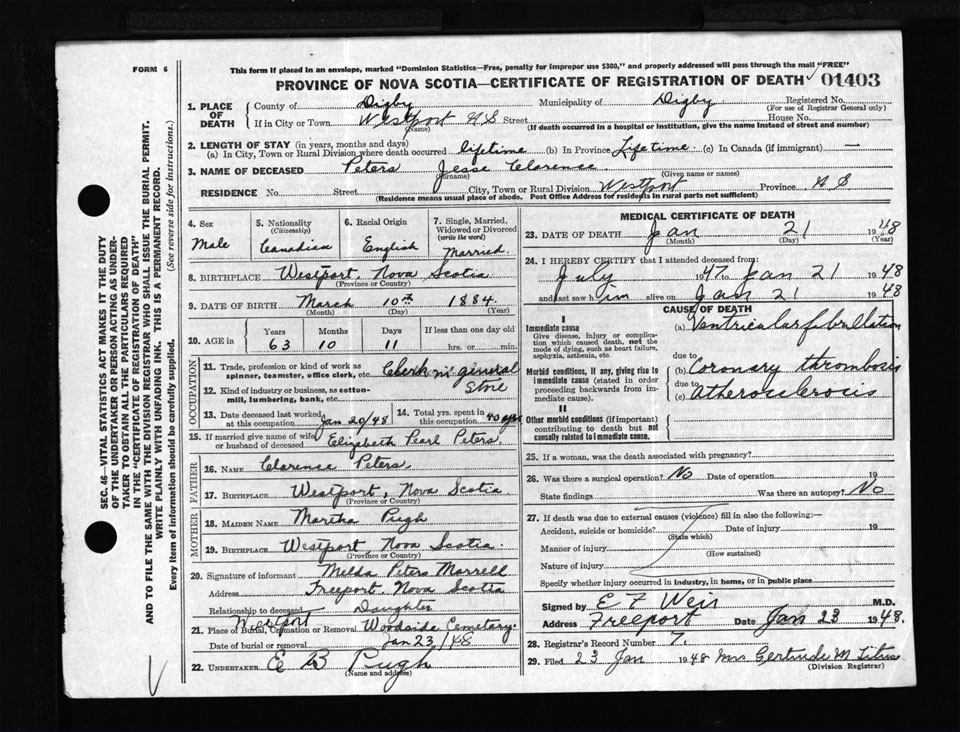 FORM 6
This form if placed in an envelope, marked "Dominion Statistics—Free, penalty for improper use $300," and properly addressed will pass through the mail "FREE"
PROVINCE OF NOVA SCOTIA—CERTIFICATE OF REGISTRATION OF DEATH 01403
SEC. 46—VITAL STATISTICS ACT MAKES IT THE DUTY
OF THE UNDERTAKER OR PERSON ACTING AS UNDER-
TAKER TO OBTAIN ALL THE PARTICULARS REQUIRED
IN THE "CERTIFICATE OF REGISTRATION OF DEATH"
AND TO FILE THE SAME WITH THE DIVISION REGISTRAR WHO SHALL ISSUE THE BURIAL PERMIT.
WRITE PLAINLY WITH UNFADING INK. THIS IS A PERMANENT RECORD.
Every item of information should be carefully supplied. (See reverse side for instructions.)
1. PLACE OF DEATH
County of Digby Municipality of Digby Registered No.
(For use of Registrar General only)
If in City or Town Westport N S Street House No.
(Name) (If death occurred in a hospital or institution, give the name instead of street and number)
2. LENGTH OF STAY (in years, months and days)
(a) In City, Town or Rural Division where death occurred lifetime (b) In Province Lifetime (c) In Canada (if immigrant) —
3. NAME OF DECEASED Peters Jesse Clarence
(Surname) (Given name or names)
RESIDENCE No. Street City, Town or Rural Division Westport Province N S
(Residence means usual place of abode. Post Office Address for residents in rural parts not sufficient)
4. Sex Male
5. Nationality (Citizenship) Canadian
6. Racial Origin English
7. Single, Married, Widowed or Divorced (write the word) Married
8. BIRTHPLACE Westport, Nova Scotia
(Province or Country)
9. DATE OF BIRTH March 10th 1884
(Month) (Day) (Year)
10. AGE in Years 63 Months 10 Days 11 If less than one day old hrs. or min.
OCCUPATION
11. Trade, profession or kind of work as spinner, teamster, office clerk, etc. Clerk in general
12. Kind of industry or business, as cotton-mill, lumbering, bank, etc. Store
13. Date deceased last worked at this occupation Jan 20/48
14. Total yrs. spent in this occupation 40 yrs
15. If married give name of wife or husband of deceased Elizabeth Pearl Peters
FATHER
16. NAME Clarence Peters
17. BIRTHPLACE Westport, Nova Scotia
(Province or Country)
MOTHER
18. MAIDEN NAME Martha Pugh
19. BIRTHPLACE Westport Nova Scotia.
(Province or Country)
20. Signature of informant Melda Peters Morrell
Address Freeport, Nova Scotia
Relationship to deceased Daughter
Westport
21. Place of Burial, Cremation or Removal Woodside Cemetary.
Date of burial or removal Jan 23/48
22. UNDERTAKER E B Pugh
(Name and address)
MEDICAL CERTIFICATE OF DEATH
23. DATE OF DEATH Jan 21 1948
(Month) (Day) (Year)
24. I HEREBY CERTIFY that I attended deceased from:
July 1947 to Jan 21 1948
and last saw him alive on Jan 21 1948
CAUSE OF DEATH
I
Immediate cause (a) Ventricular fibrillation
Give disease, injury or complication which caused death, not the mode of dying, such as heart failure, asphyxia, asthenia, etc.
due to
Morbid conditions, if any, giving rise to immediate cause (stated in order proceeding backwards from immediate cause). (b) Coronary thrombosis
due to
(c) Atherosclerosis
II
Other morbid conditions (if important) contributing to death but not causally related to immediate cause.
25. If a woman, was the death associated with pregnancy?
26. Was there a surgical operation? No Date of operation 19
State findings Was there an autopsy? No
27. If death was due to external causes (violence) fill in also the following:—
Accident, suicide or homicide? Date of injury 19
(State which)
Manner of injury
(How sustained)
Nature of injury
Specify whether injury occurred in industry, in home, or in public place
Signed by E F Weir M.D.
Address Freeport Date Jan 23 1948.
28. Registrar's Record Number 7.
29. Filed 23 Jan 1948 Mrs Gertrude M Titus
(Division Registrar)